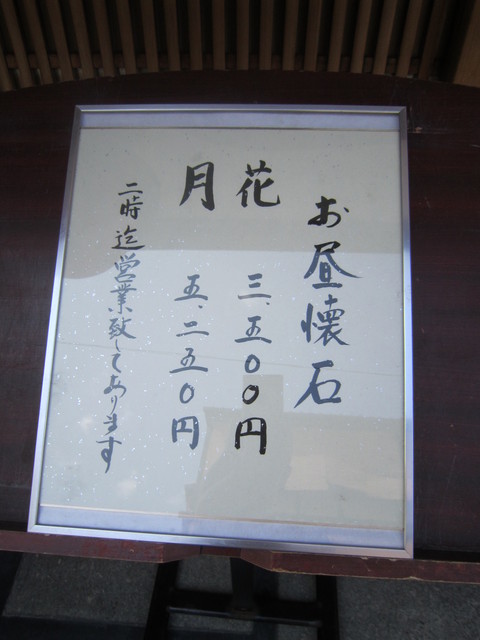 お昼懐石
花 三、五〇〇円
月 五、二五〇円
二時迄営業致してあります